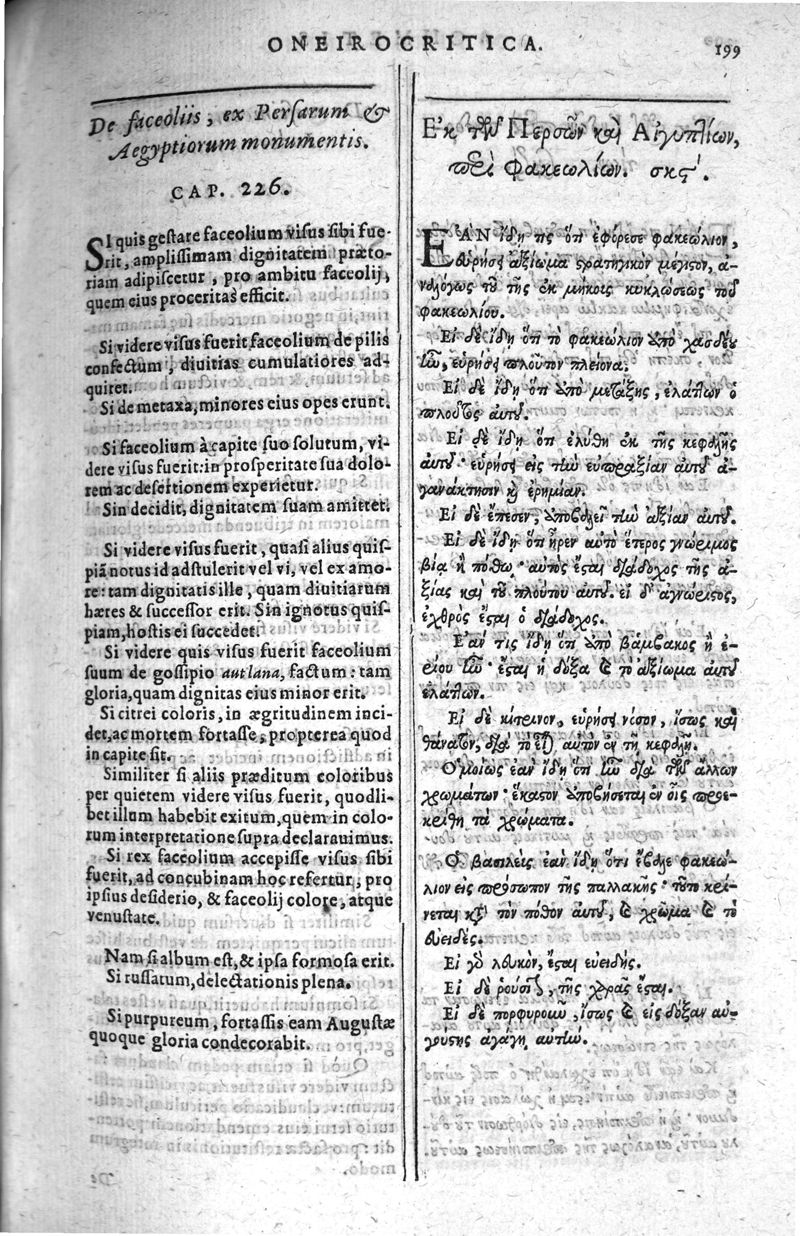 ONEIROCRITICA.
199
De faceoliis, ex Persarum &
Aegyptiorum monumentis.
CAP. 226.
SI quis gestare faceolium visus sibi fue-
rit, amplissimam dignitatem præto-
riam adipiscetur, pro ambitu faceolij,
quem eius proceritas efficit.
Si videre visus fuerit faceolium de pilis
confectum, diuitias cumulatiores ad-
quiret.
Si de metaxa, minores eius opes erunt.
Si faceolium à capite suo solutum, vi-
dere visus fuerit: in prosperitate sua dolo-
rem ac desertionem experietur.
Sin decidit, dignitatem suam amittet.
Si videre visus fuerit, quasi alius quis-
piã notus id adstulerit vel vi, vel ex amo-
re: tam dignitatis ille, quam diuitiarum
hæres & successor erit. Sin ignotus quis-
piam, hostis ei succedet.
Si videre quis visus fuerit faceolium
suum de gossipio autlana, factum: tam
gloria, quam dignitas eius minor erit.
Si citrei coloris, in ægritudinem inci-
det, ac mortem fortasse, propterea quod
in capite sit.
Similiter si aliis præditum coloribus
per quietem videre visus fuerit, quodli-
bet illum habebit exitum, quem in colo-
rum interpretatione supra declarauimus.
Si rex faceolium accepisse visus sibi
fuerit, ad concubinam hoc refertur, pro
ipsius desiderio, & faceolij colore, atque
venustate.
Nam si album est, & ipsa formosa erit.
Si russatum, delectationis plena.
Si purpureum, fortassis eam Augustæ
quoque gloria condecorabit.
Ἐκ τῶν Περσῶν καὶ Αἰγυπτίων,
περὶ Φακεωλίων. σκϛʹ.
ΕΑΝ ἴδη τις ὅτι ἐφόρεσε φακεώλιον,
εὑρήσει ἀξίωμα στρατηγικὸν μέγιστον, ἀ-
ναλόγως τοῦ τῆς ἐκ μήκους κυκλώσεως τοῦ
φακεωλίου.
Εἰ δὲ ἴδη ὅτι τὸ φακεώλιον ἀπὸ χασδέου
ἦν, εὑρήσει πλοῦτον πλείονα.
Εἰ δὲ ἴδη ὅτι ἀπὸ μετάξης, ἐλάττων ὁ
πλοῦτος αὐτοῦ.
Εἰ δὲ ἴδη ὅτι ἐλύθη ἐκ τῆς κεφαλῆς
αὐτοῦ· εὑρήσει εἰς τὴν εὐπραξίαν αὐτοῦ ἀ-
γανάκτησιν καὶ ἐρημίαν.
Εἰ δὲ ἔπεσεν, ἀποβαλεῖ τὴν ἀξίαν αὐτοῦ.
Εἰ δὲ ἴδη ὅτι ἦρεν αὐτὸ ἕτερος γνώριμος
βίᾳ ἢ πόθῳ· αὐτὸς ἔσται διάδοχος τῆς ἀ-
ξίας καὶ τοῦ πλούτου αὐτοῦ. εἰ δ' ἀγνώριστος,
ἐχθρὸς ἔσται ὁ διάδοχος.
Ἐάν τις ἴδη ὅτι ἀπὸ βάμβακος ἢ ἐ-
ρίου ἦν· ἔσται ἡ δόξα καὶ τὸ ἀξίωμα αὐτοῦ
ἐλάττων.
Εἰ δὲ κίτρινον, εὑρήσει νόσον, ἴσως καὶ
θάνατον, διὰ τὸ εἶναι αὐτὸν ἐν τῇ κεφαλῇ.
Ὁμοίως ἐὰν ἴδη ὅτι ἦν διὰ τῶν ἄλλων
χρωμάτων· ἕκαστον ἀποβήσεται ἐν οἷς προε-
κρίθη τὰ χρώματα.
Ὁ βασιλεὺς ἐὰν ἴδη ὅτι ἔβαλε φακεώ-
λιον εἰς πρόσωπον τῆς παλλακῆς· τοῦτο κρί-
νεται κατὰ τὸν πόθον αὐτοῦ, καὶ χρῶμα καὶ τὸ
εὐειδές.
Εἰ γὰρ λευκὸν, ἔσται εὐειδής.
Εἰ δὲ ῥούσιον, τῆς χαρᾶς ἔσται.
Εἰ δὲ πορφυροῦν, ἴσως καὶ εἰς δόξαν αὐ-
γούστης ἀγάγῃ αὐτήν.